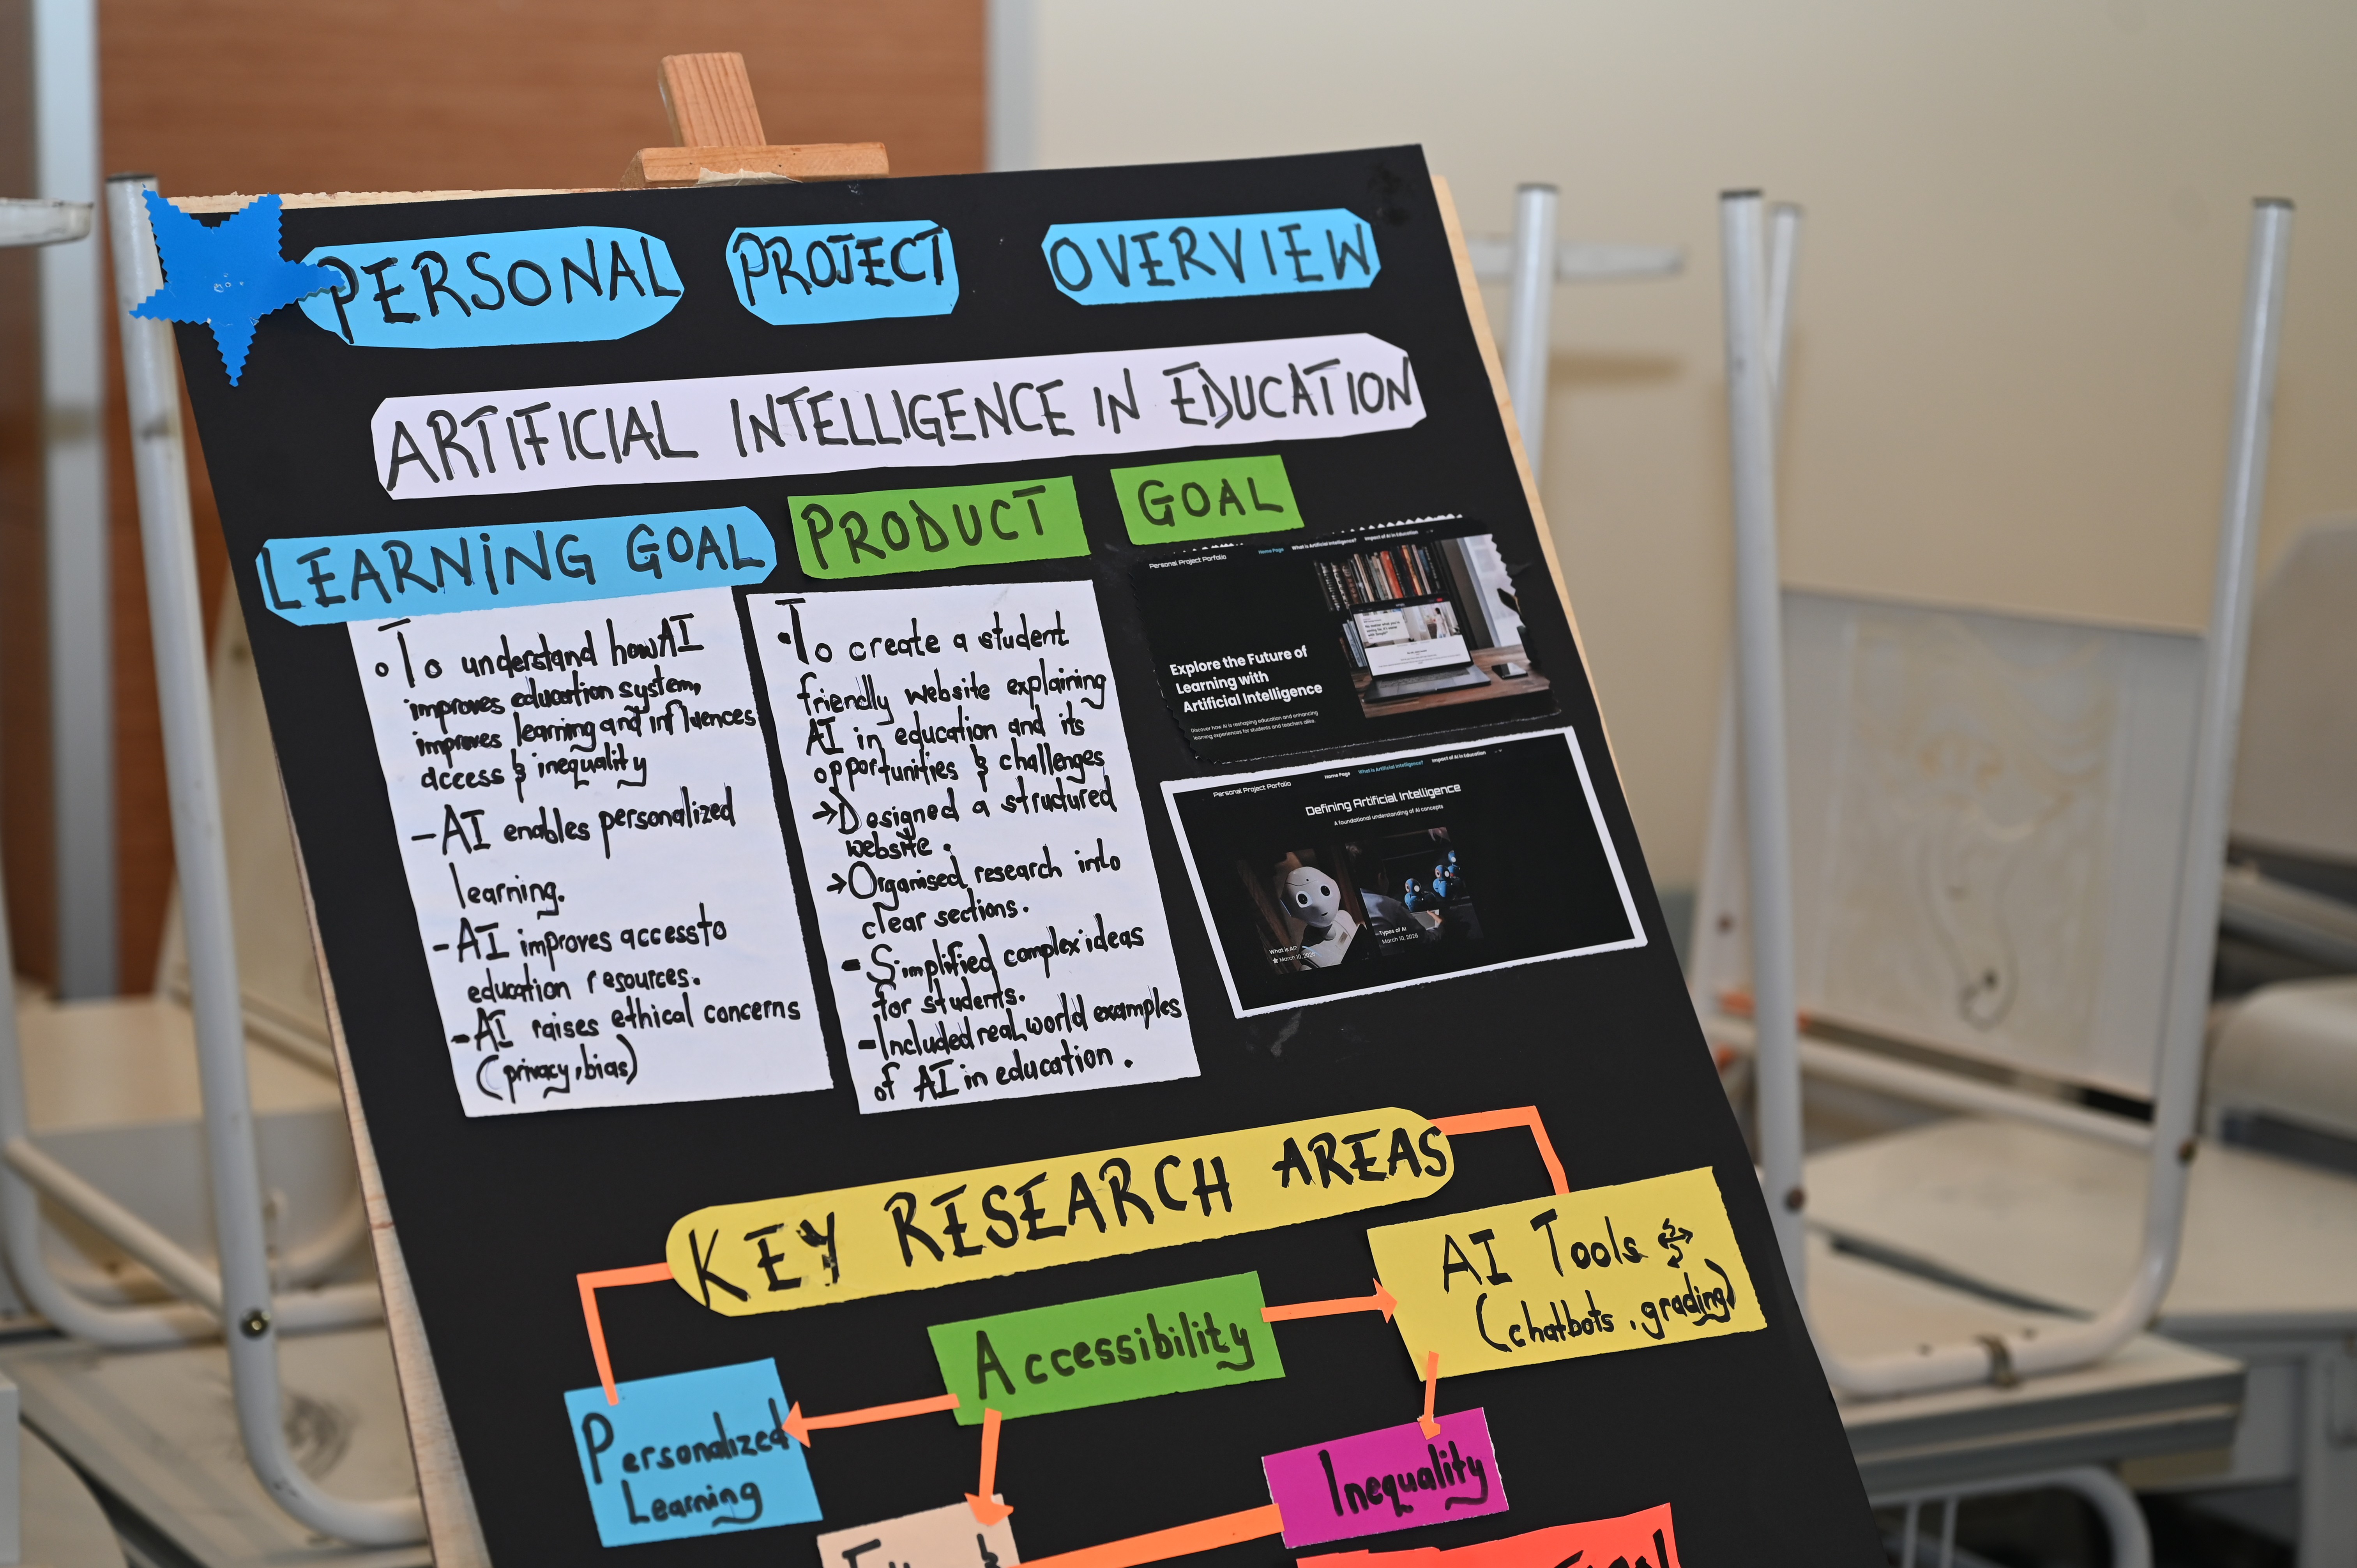 PERSONAL PROJECT OVERVIEW
ARTIFICIAL INTELLIGENCE IN EDUCATION
LEARNING GOAL
To understand how AI
improves education system,
improves learning and influences
access & inequality
- AI enables personalized
learning.
- AI improves access to
education resources.
- AI raises ethical concerns
(privacy, bias)
PRODUCT GOAL
• To create a student
friendly website explaining
AI in education and its
opportunities & challenges
→ Designed a structured
website.
→ Organised research into
clear sections.
- Simplified complex ideas
for students.
- Included real world examples
of AI in education.
Personal Project Porfolio
Home Page What is Artificial Intelligence? Impact of AI in Education
Explore the Future of
Learning with
Artificial Intelligence
Discover how AI is reshaping education and enhancing
learning experiences for students and teachers alike.
Personal Project Porfolio
Home Page What is Artificial Intelligence? Impact of AI in Education
Defining Artificial Intelligence
A foundational understanding of AI concepts
What is AI?
March 10, 2026
Types of AI
March 10, 2026
KEY RESEARCH AREAS
AI Tools
(chatbots, grading)
Accessibility
Personalized
Learning
Inequality